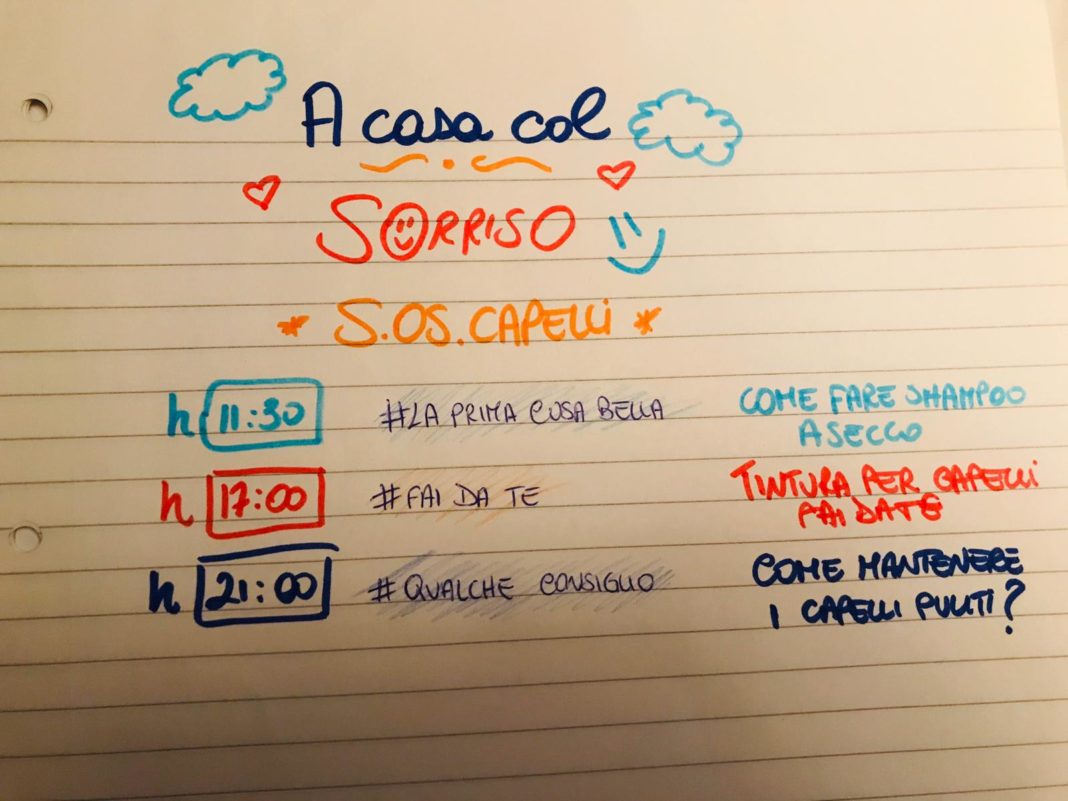 A casa col
SORRISO
* S.OS. CAPELLi *
h 11:30 #LA PRIMA COSA BELLA COME FARE SHAMPOO
A SECCO
h 17:00 #FAI DA TE TINTURA PER CAPELLi
FAI DA TE
h 21:00 #QUALCHE CONSIGLIO COME MANTENERE
I CAPELLI PULITI?